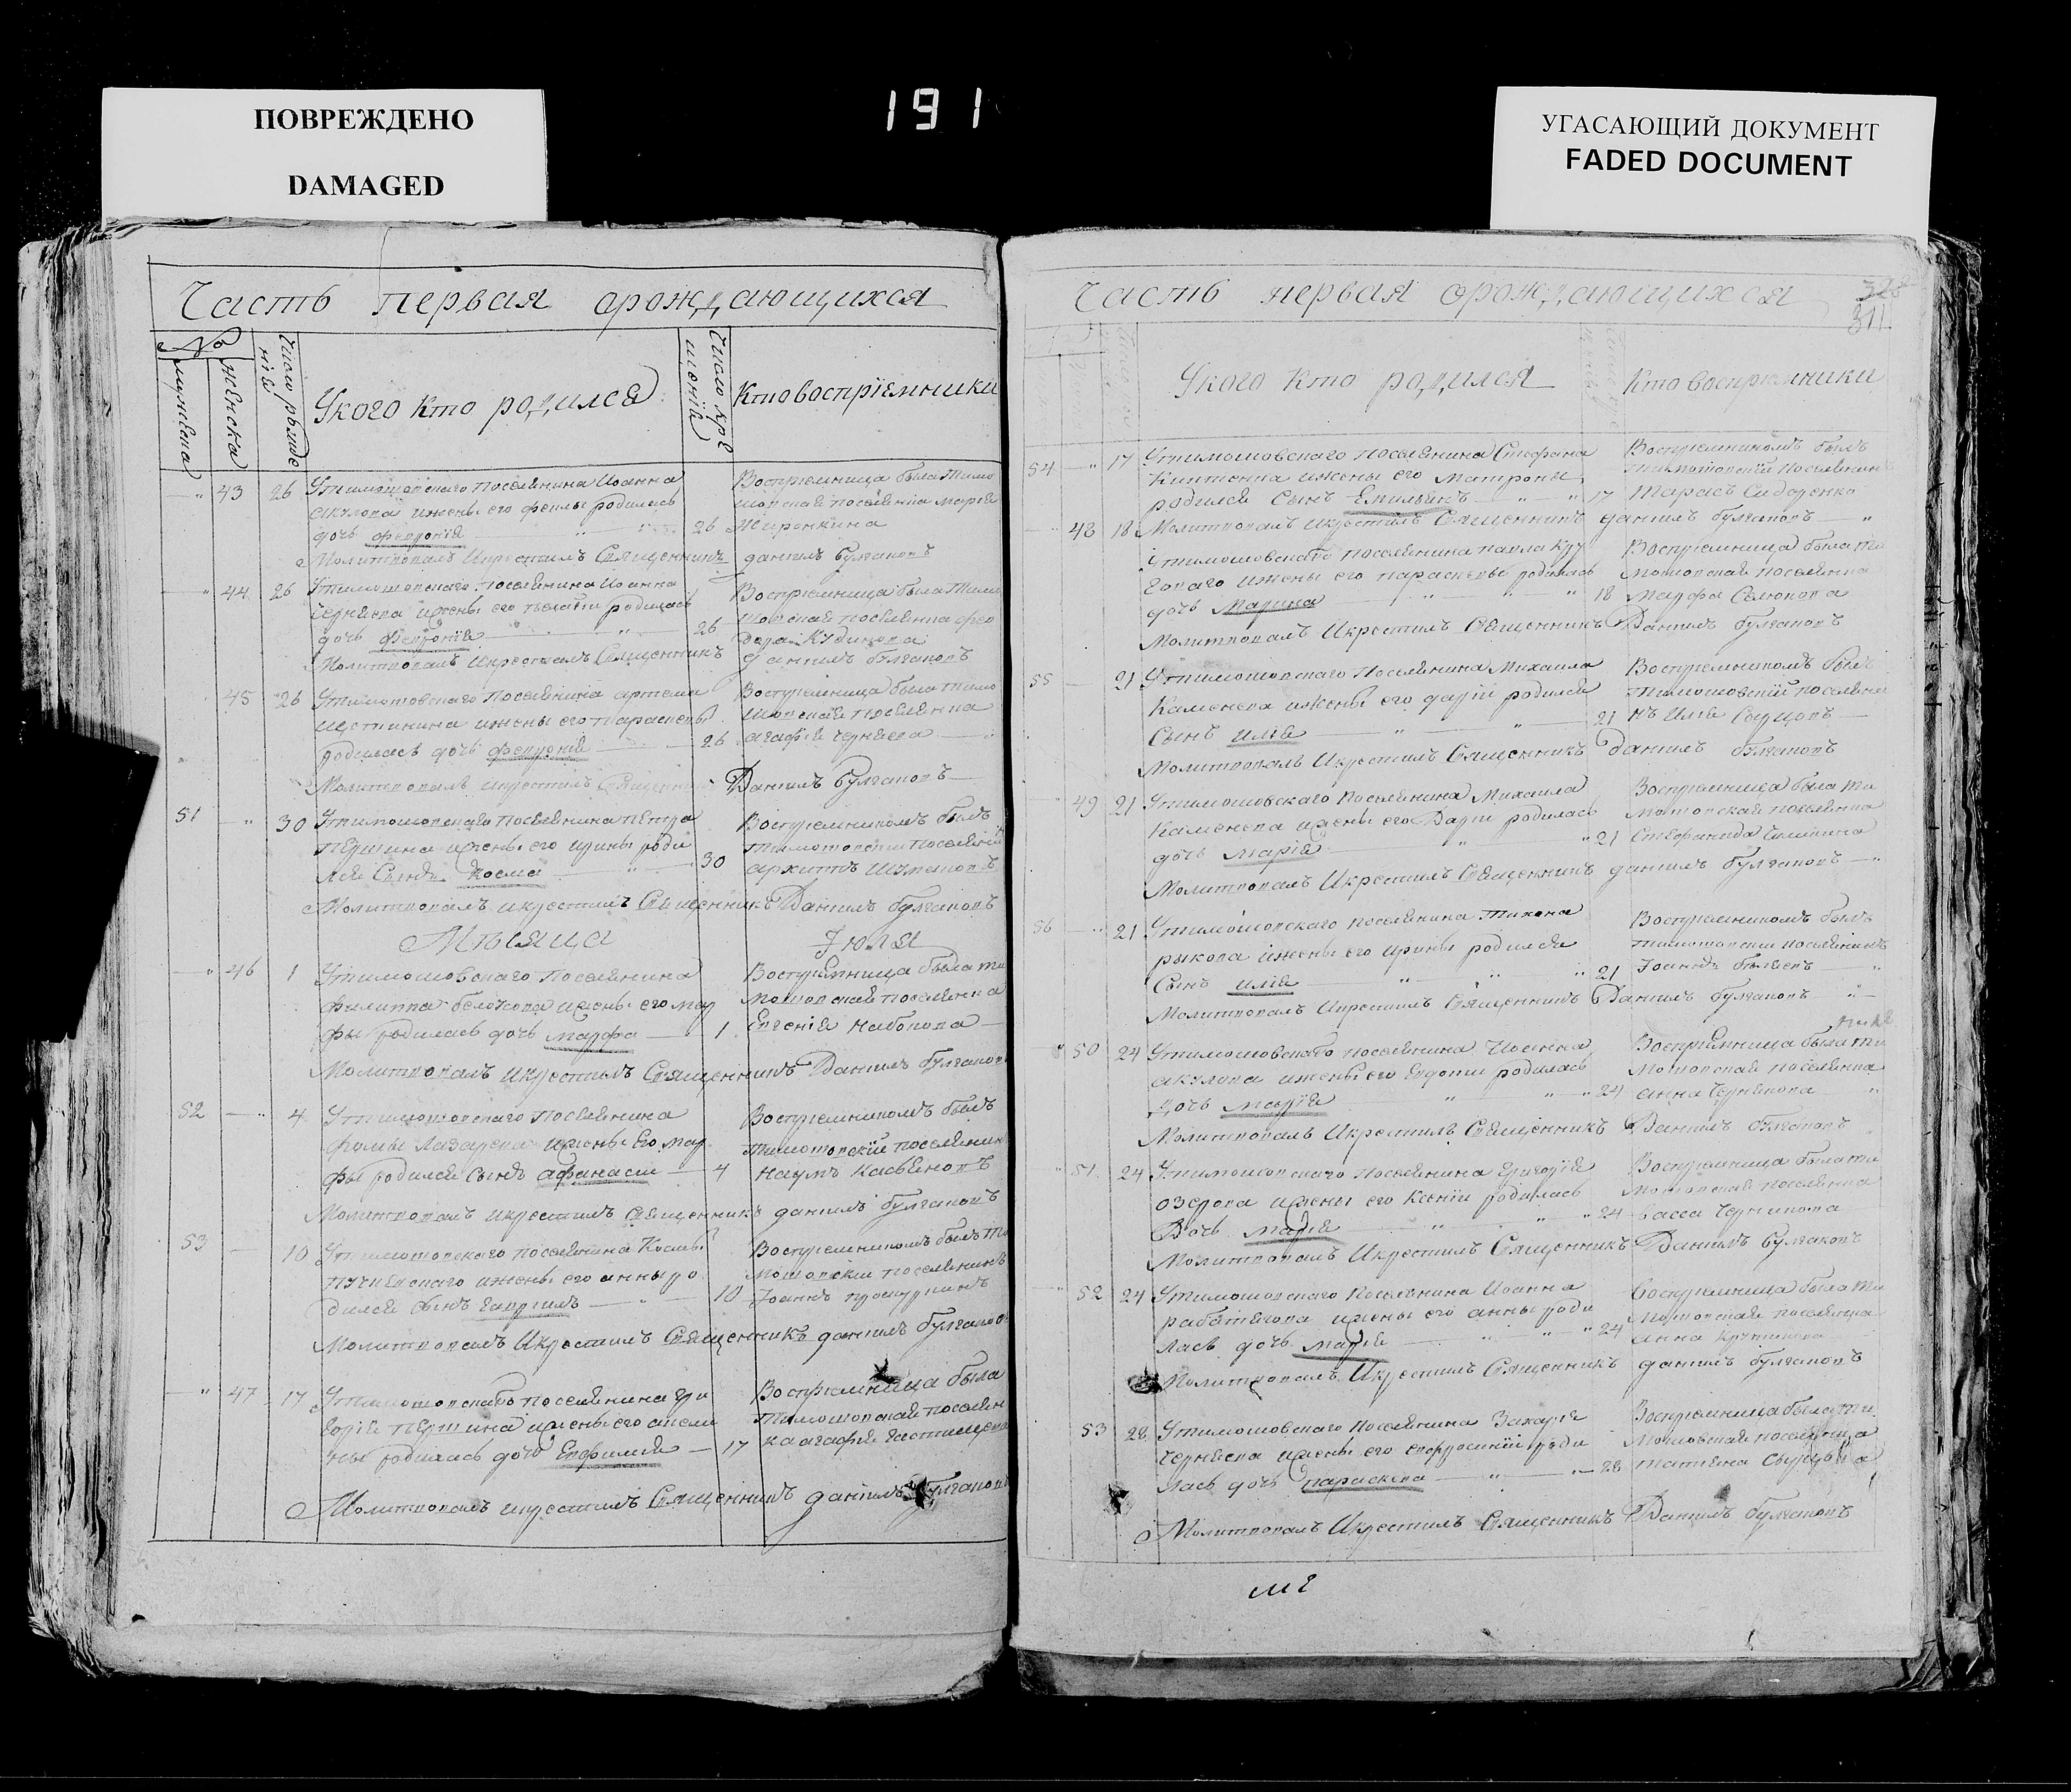 ПОВРЕЖДЕНО
DAMAGED
191
УГАСАЮЩИЙ ДОКУМЕНТ
FADED DOCUMENT
Часть первая орождающихся
№
мужеска
женска
Число рожде
нія
Укого кто родился
Число кре
щенія
Кто воспріемники
" 43 26 Утимошовскаго поселянина Иоанна
Акулова ижены его феклы родилась
дочь Феврониа 26
Воспріемница была Тимо
шовская поселянка Мариа
Жиренкина
Молитвовалъ Икрестилъ Священникъ Даниилъ Булгаковъ
" 44 26 Утимошовскаго поселянина Иоанна
Черняева ижены его родилась
дочь Феврониа 26
Воспріемница была Тимо
шовская поселянка Фео
дора Кудинова
Молитвовалъ Икрестилъ Священникъ Даниилъ Булгаковъ
45 26 Утимошовскаго поселянина Артема
Щетинина ижены его Параскевы
родилась дочь Феврониа 26
Воспріемница была Тимо
шовская поселянка
Агафия Черняева
Молитвовалъ икрестилъ Священникъ Даниилъ Булгаковъ
51 " 30 Утимошовскаго поселянина Петра
Першина ижены его Ирины роди
лся Сынъ Косма 30
Воспріемникомъ былъ
Тимошовский поселянин
Архиппъ
Молитвовалъ икрестилъ Священникъ Даниилъ Булгаковъ
Мѣсяца Июля
" 46 1 Утимошовскаго поселянина
Филиппа Белокопа ижены его Мар
фы родилась дочь Марфа 1
Воспріемница была ти
мошовская поселянка
Евгения Набокова
Молитвовалъ Икрестилъ Священникъ Даниилъ Булгаковъ
52 " 4 Утимошовскаго поселянина
Фомы Лазарева ижены Его Мар
фы родился Сынъ Афанасий 4
Воспріемникомъ былъ
Тимошовский поселянин
Наумъ Касьяновъ
Молитвовалъ икрестилъ Священникъ Даниилъ Булгаковъ
53 10 Утимошовскаго поселянина Космы
ижены его Анны ро
дился Сынъ Гавриилъ 10
Воспріемникомъ былъ ти
мошовский поселянинъ
Іоаннъ Проскуринъ
Молитвовалъ Икрестилъ Священникъ Даниилъ Булгаковъ
" 47 17 Утимошовскаго поселянина Гри
гория Першина ижены его Акели
ны родилась дочь Евфимия 17
Воспріемница была
Тимошовская поселян
ка Агафия
Молитвовалъ икрестилъ Священникъ Даниилъ Булгаковъ
Часть первая орождающихся
328
311
Укого кто родился
Кто воспріемники
54 " 17 Утимошовскаго поселянина Стефана
ижены его Матроны
родился Сынъ Емильянъ 17
Воспріемникомъ былъ
Тимошовский поселянин
Тарасъ Сидоренко
Молитвовалъ Икрестилъ Священникъ Даниилъ Булгаковъ
48 18 Утимошовскаго поселянина Павла Кру
говаго ижены его Параскевы родилась
дочь Марина 18
Воспріемница была ти
мошовская поселянка
Марфа Семюкова
Молитвовалъ Икрестилъ Священникъ Даниилъ Булгаковъ
55 21 Утимошовскаго поселянина Михаила
Каменева ижены его Дарии родился
Сынъ Илиа 21
Воспріемникомъ былъ
Тимошовский поселяни
нъ Илия Сырцовъ
Молитвовалъ Икрестилъ Священникъ Даниилъ Булгаковъ
49 21 Утимошовскаго поселянина Михаила
Каменева ижены его Дарии родилась
дочь Мариа 21
Воспріемница была ти
мошовская поселянка
Стефанида
Молитвовалъ Икрестилъ Священникъ Даниилъ Булгаковъ
56 " 21 Утимошовскаго поселянина Тихона
Рыкова ижены его Ирины родился
Сынъ Илиа 21
Воспріемникомъ былъ
Тимошовский поселянинъ
Іоаннъ Беляевъ
Молитвовалъ Икрестилъ Священникъ Даниилъ Булгаковъ
" 50 24 Утимошовскаго поселянина Иоанна
Акулова ижены его Евдокии родилась
дочь Мария 24
Воспріемница была ти
мошовская поселянка
Анна Черникова
Молитвовалъ Икрестилъ Священникъ Даниилъ Булгаковъ
" 51 24 Утимошовскаго поселянина Григория
Озерова ижены его Ксении родилась
Дочь Мария 24
Воспріемница была ти
мошовская поселянка
Васса Черникова
Молитвовалъ Икрестилъ Священникъ Даниилъ Булгаковъ
" 52 24 Утимошовскаго поселянина Иоанна
Работягова ижены его Анны роди
лась дочь Мария 24
Воспріемница была ти
мошовская поселянка
Анна
Молитвовалъ Икрестилъ Священникъ Даниилъ Булгаковъ
53 28 Утимошовскаго поселянина Захария
Черняева ижены его Евфросинии роди
лась дочь Параскева 28
Воспріемница была ти
мошовская поселянка
Татияна Сырцова
Молитвовалъ Икрестилъ Священникъ Даниилъ Булгаковъ